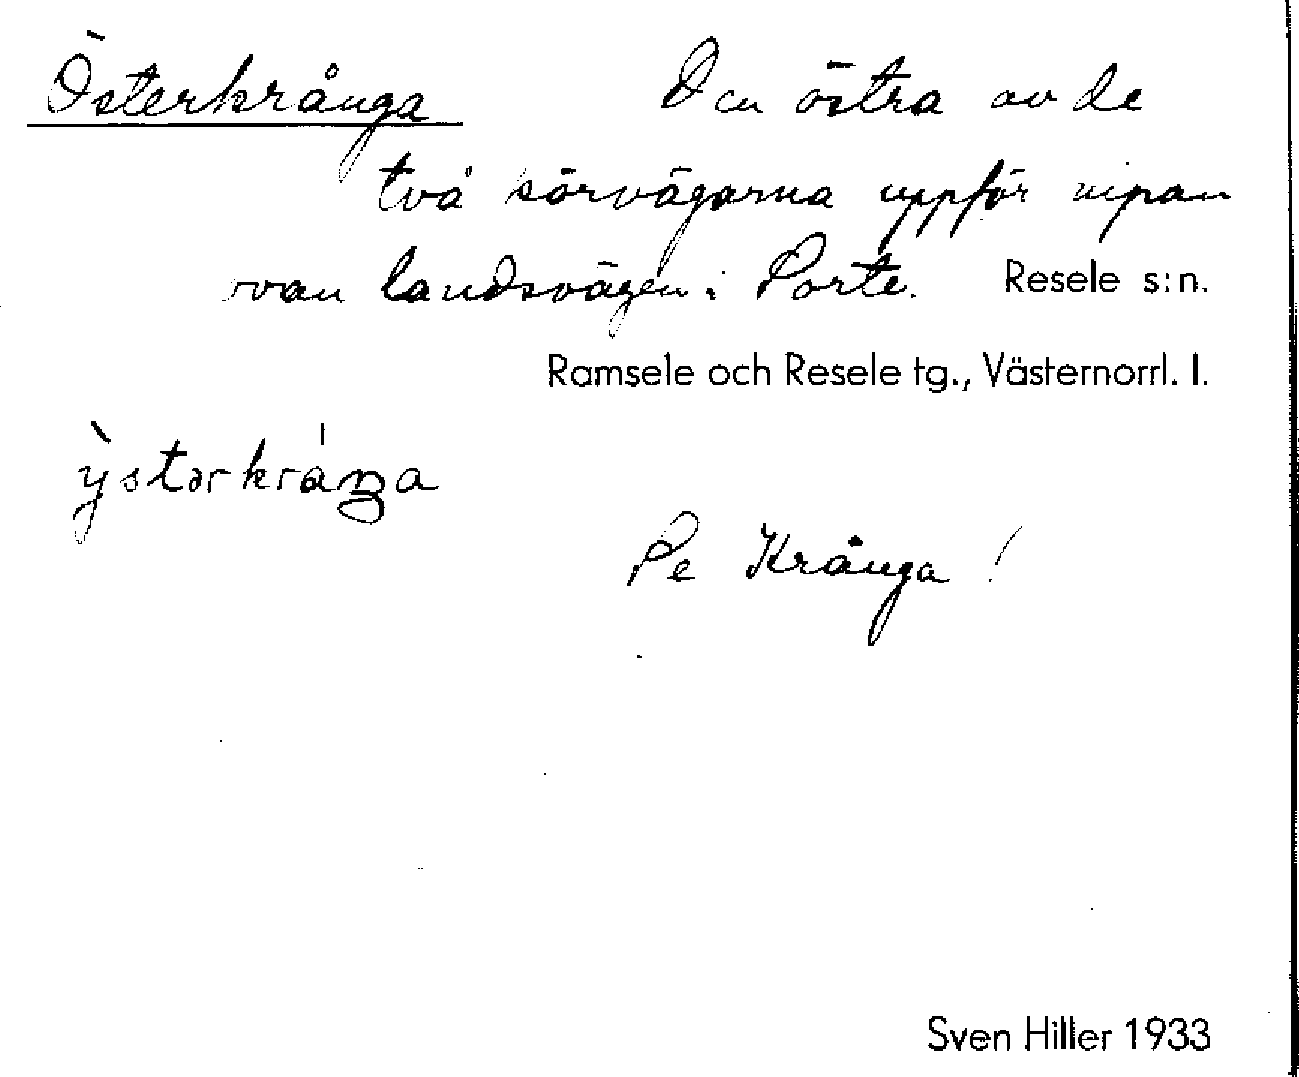 Österkrånga Den östra av de
två körvägarna uppför nipan
ovan landsvägen i Porte. Resele s:n.
Ramsele och Resele tg., Västernorrl. l.
ỳstərkráŋa
Se Krånga!
Sven Hiller 1933